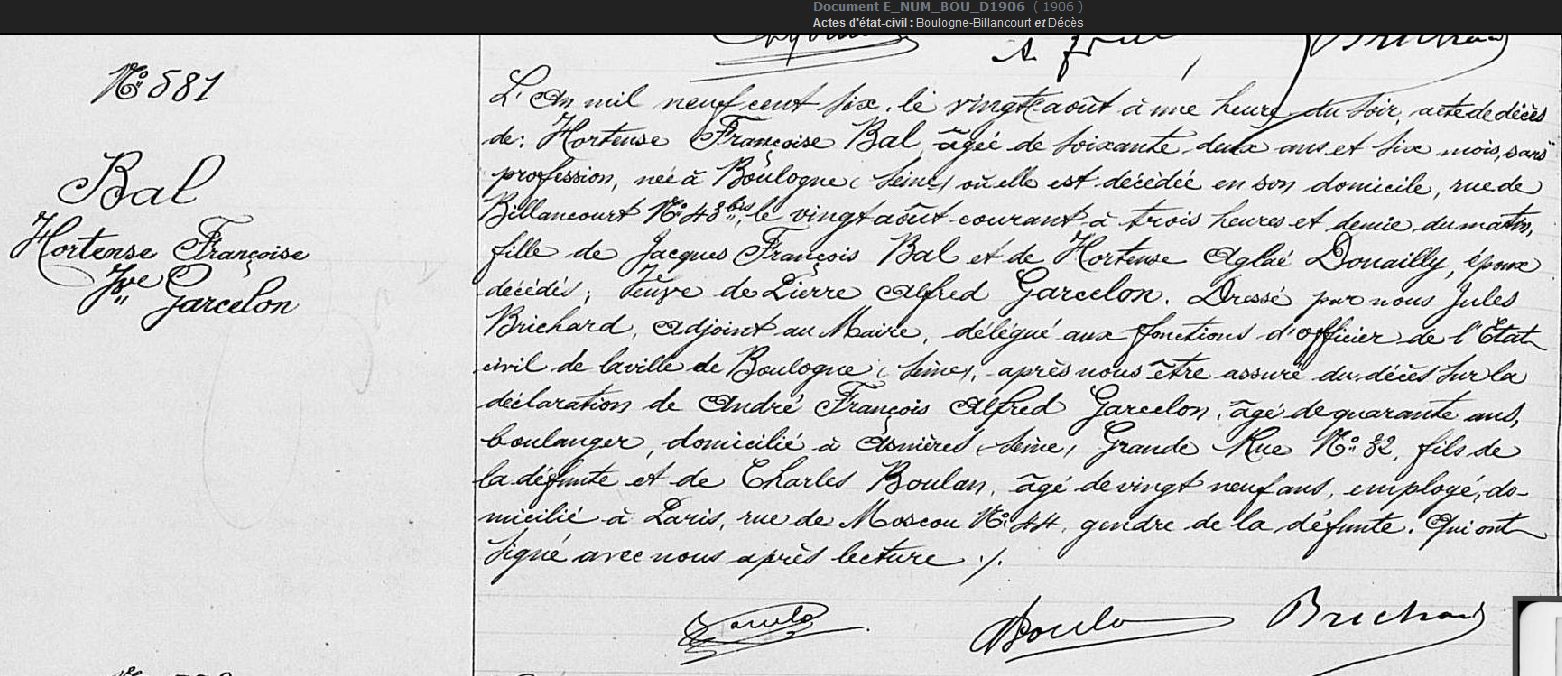 Document E_NUM_BOU_D1906 ( 1906 )
Actes d'état-civil : Boulogne-Billancourt et Décès
Brichard
N° 581
Bal
Hortense Françoise
Vve Garcelon
L'An mil neuf cent six, le vingt août à une heure du soir, acte de décès
de: Hortense Françoise Bal, âgée de soixante deux ans et six mois, sans
profession, née à Boulogne (Seine) où elle est décédée en son domicile, rue de
Billancourt N° 48 bis, le vingt août courant à trois heures et demie du matin,
fille de Jacques François Bal et de Hortense Aglaé Douailly, époux
décédés; Veuve de Pierre Alfred Garcelon. Dressé par nous Jules
Brichard, Adjoint au Maire, délégué aux fonctions d'officier de l'Etat
civil de la ville de Boulogne (Seine), après nous être assuré du décès sur la
déclaration de André François Alfred Garcelon, âgé de quarante ans,
boulanger, domicilié à Asnières (Seine) Grande Rue N° 32, fils de
la défunte et de Charles Boulan, âgé de vingt neuf ans, employé, do-
micilié à Paris, rue de Moscou N° 44, gendre de la défunte. Qui ont
signé avec nous après lecture ./.
Brichard